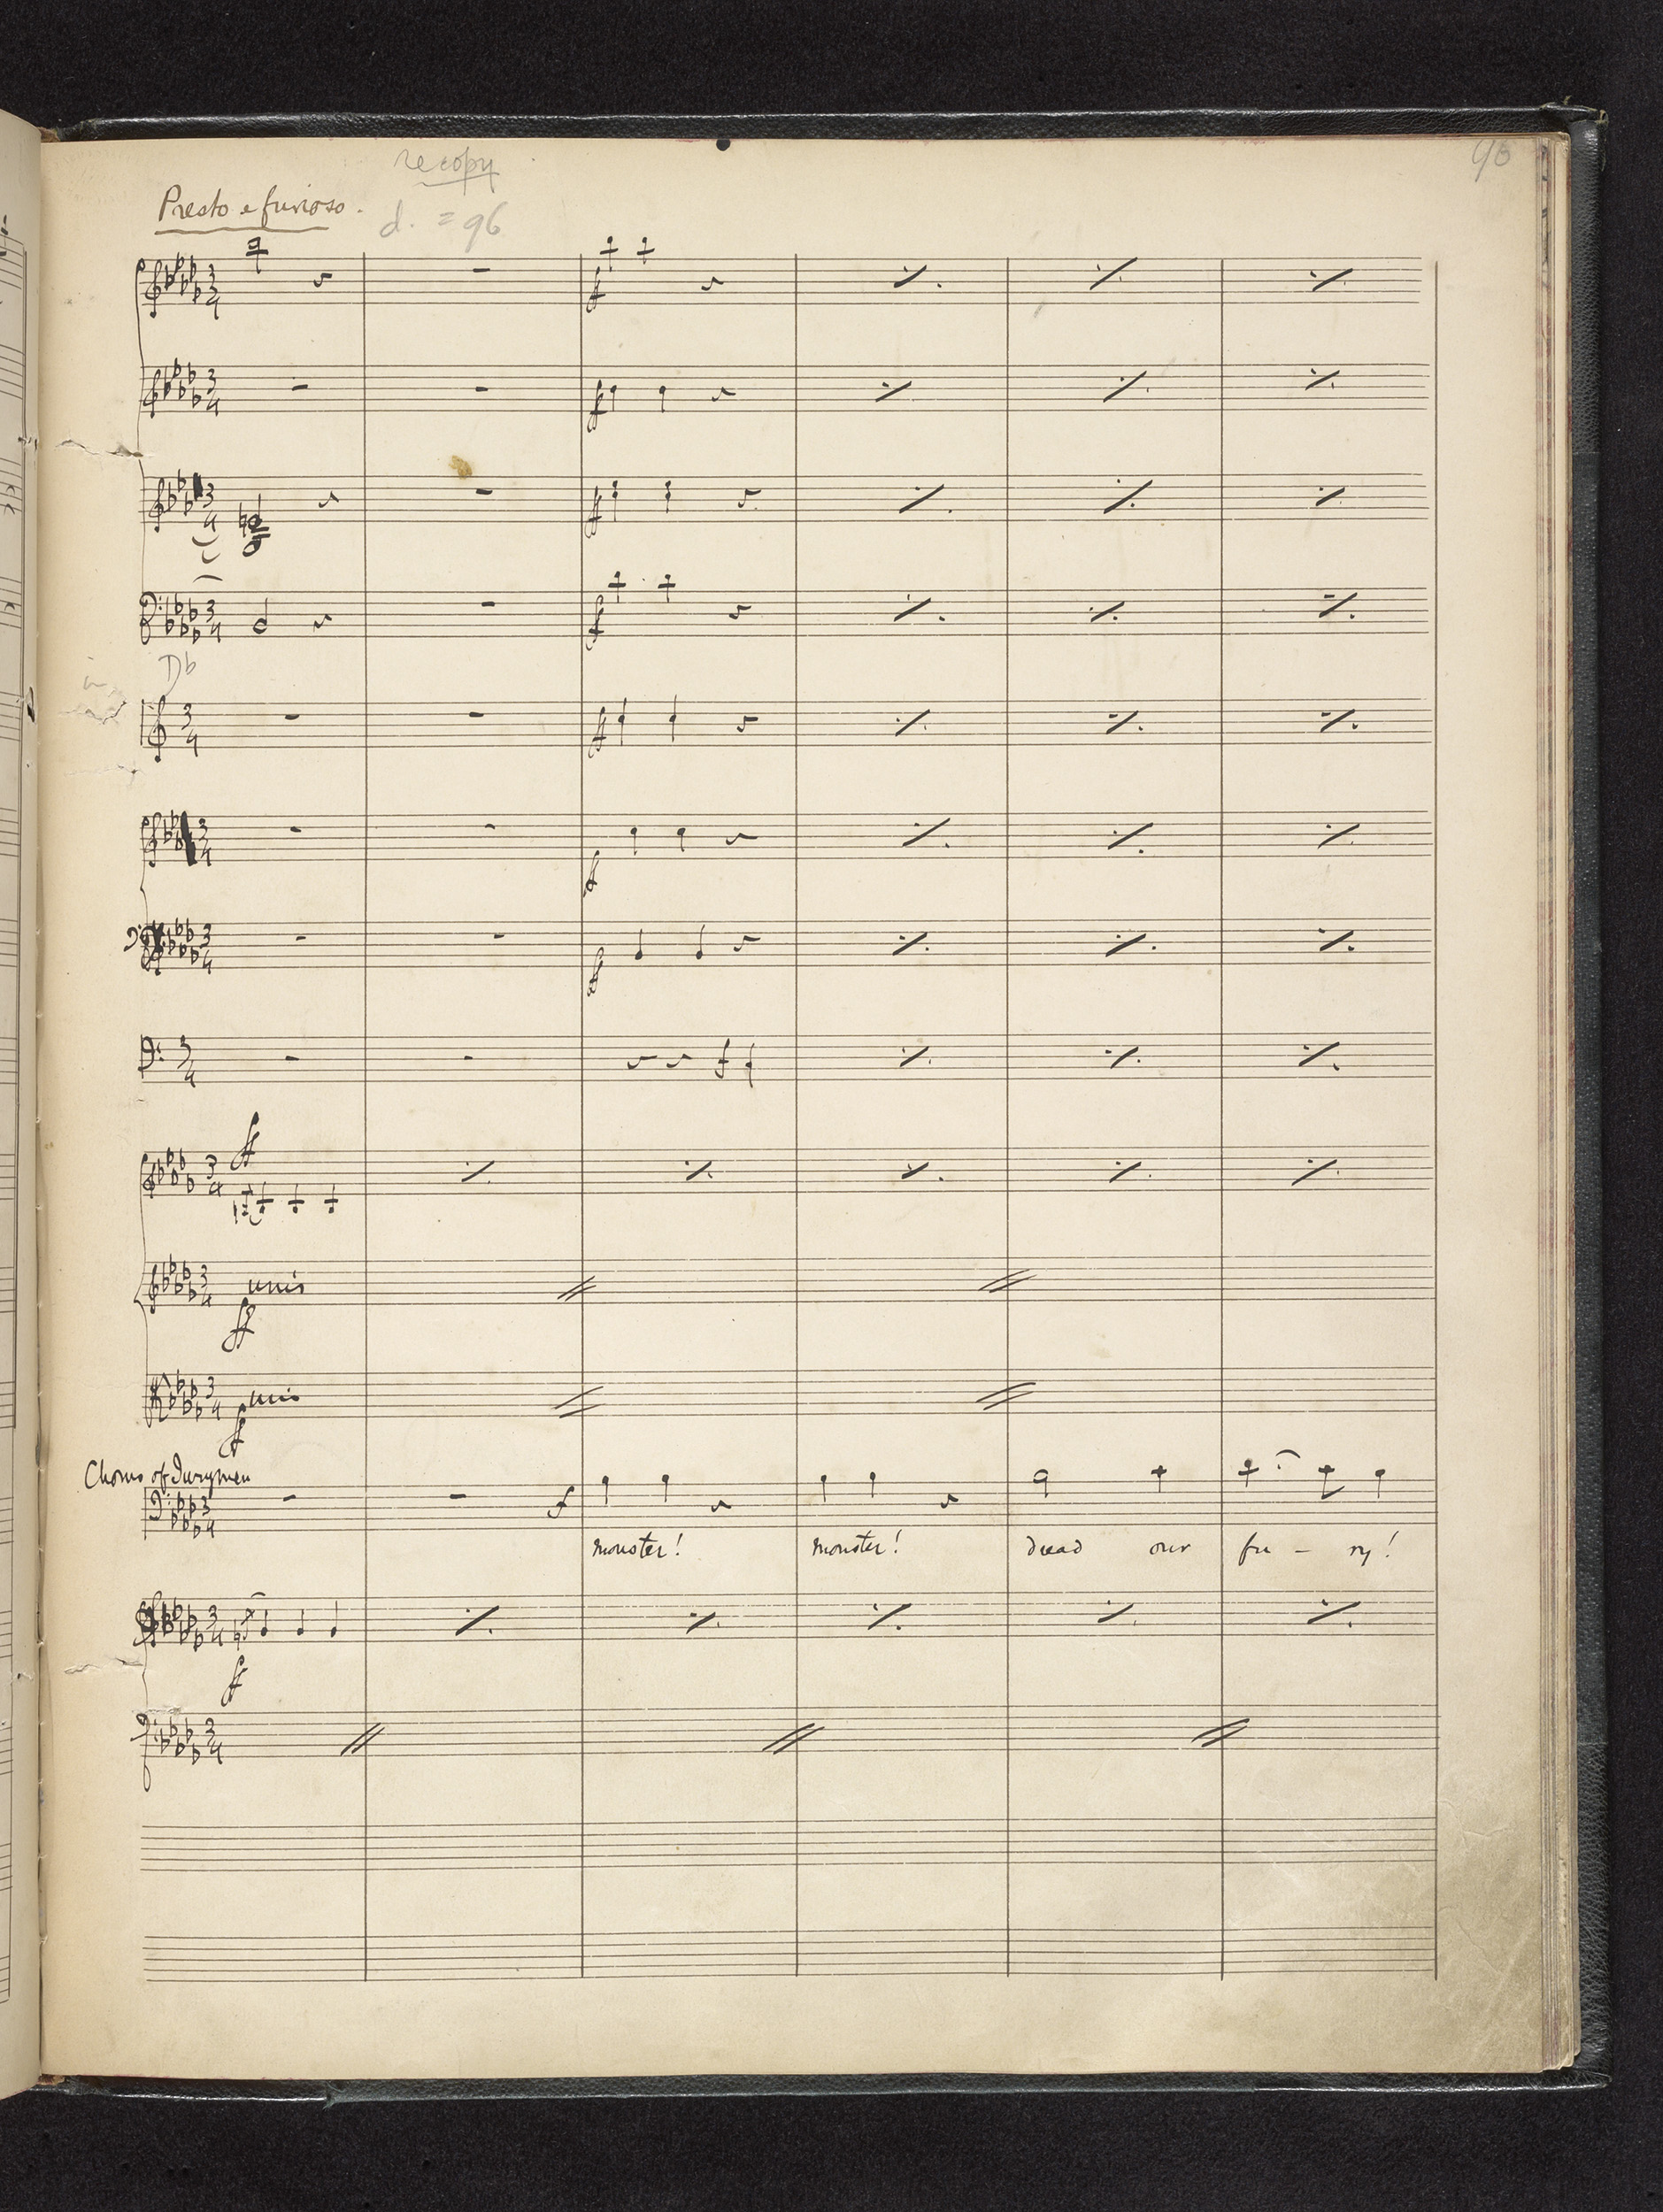 recopy
Presto e furioso.
d. = 96
Db
unis
unis
Chorus of Jurymen
monster! monster! dread our fu - ry!